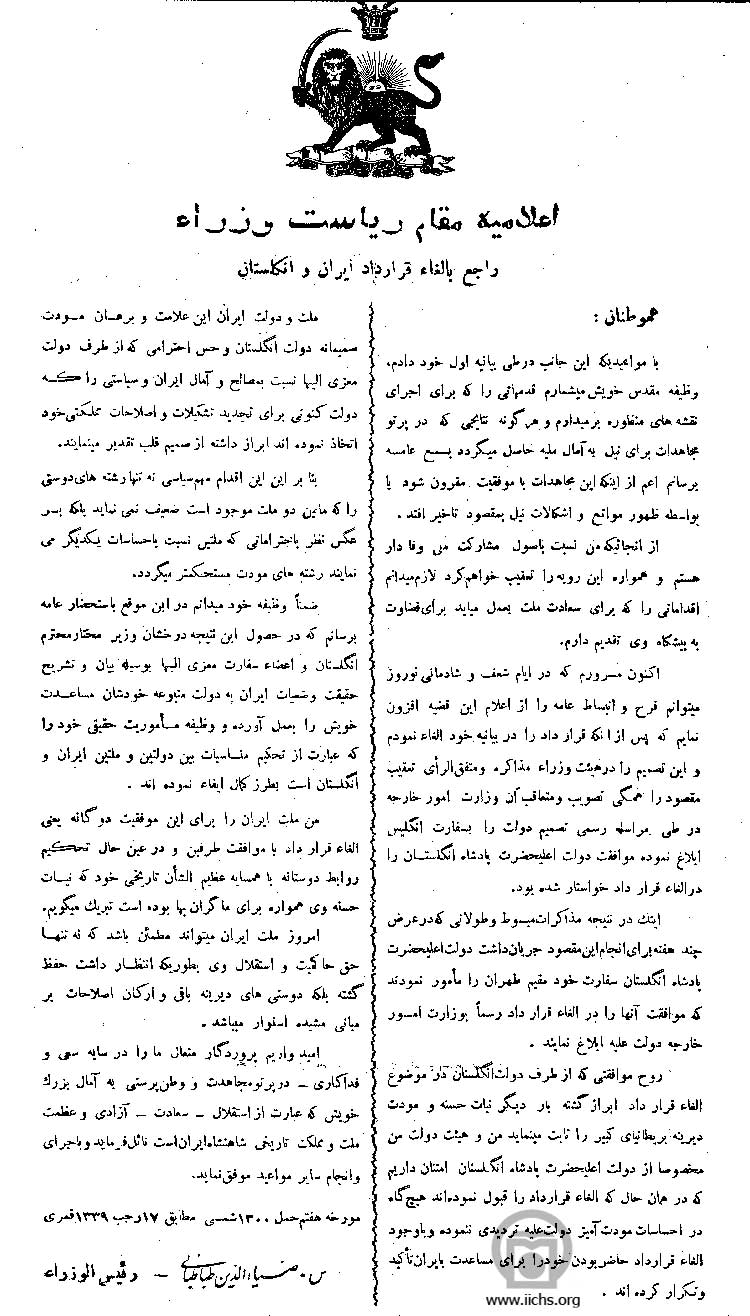 اعلامیه مقام ریاست وزراء
راجع بالغاء قرارداد ایران و انگلستان
هموطنان :
با مواعیدیکه این جانب در طی بیانیه اول خود دادم،
وظیفه مقدس خویش میشمارم قدمهائی را که برای اجرای
نقشه های منظوره برمیدارم و هرگونه نتایجی که در پرتو
مجاهدات برای نیل به آمال ملیه حاصل میگردد بسمع عامه
برسانم اعم از اینکه این مجاهدات با موفقیت مقرون شود یا
بواسطه ظهور موانع و اشکالات نیل بمقصود تاخیر افتد .
از انجائیکه من نسبت باصول مشارکت ملی وفا دار
هستم و همواره این رویه را تعقیب خواهم کرد لازم میدانم
اقداماتی را که برای سعادت ملت بعمل میاید برای قضاوت
به پیشگاه وی تقدیم دارم.
اکنون مسرورم که در ایام شعف و شادمانی نوروز
میتوانم فرح و انبساط عامه را از اعلام این قضیه افزون
نمایم که پس از انکه قرار داد را در بیانیه خود الغاء نمودم
و این تصمیم را در هیئت وزراء مذاکره ومتفق الرأی تعقیب
مقصود را همگی تصویب ومتعاقب آن وزارت امور خارجه
در طی مراسله رسمی تصمیم دولت را بسفارت انگلیس
ابلاغ نموده موافقت دولت اعلیحضرت پادشاه انگلستان را
در الغاء قرار داد خواستار شده بود.
اینك در نتیجه مذاکرات مبسوط وطولانی که در عرض
چند هفته برای انجام این مقصود جریان داشت دولت اعلیحضرت
پادشاه انگلستان سفارت خود مقیم طهران را مأمور نمودند
که موافقت آنها را در الغاء قرار داد رسماً بوزارت امور
خارجه دولت علیه ابلاغ نمایند .
روح موافقتی که از طرف دولت انگلستان در موضوع
الغاء قرار داد ابراز گشته بار دیگر نیات حسنه و مودت
دیرینه بریطانیای کبیر را ثابت مینماید من و هیئت دولت من
مخصوصا از دولت اعلیحضرت پادشاه انگلستان امتنان داریم
که در همان حال که الغاء قرارداد را قبول نموده اند هیچگاه
در احساسات مودت آمیز دولت علیه تردیدی ننموده وباوجود
الغاء قرارداد حاضر بودن خود را برای مساعدت بایران تأکید
وتکرار کرده اند .
ملت و دولت ایران این علامت و برهان مودت
صمیمانه دولت انگلستان وحس احترامی که از طرف دولت
معزی الیها نسبت بمصالح و آمال ایران وسیاستی را که
دولت کنونی برای تجدید تشکیلات و اصلاحات مملکتی خود
اتخاذ نموده اند ابراز داشته از صمیم قلب تقدیر مینمایند.
بنا بر این این اقدام مهم سیاسی نه تنها رشته های دوستی
را که مابین دو ملت موجود است ضعیف نمی نماید بلکه بر
عکس نظر باحتراماتی که ملتین نسبت باحساسات یکدیگر می
نمایند رشته های مودت مستحکمتر میگردد.
ضمناً وظیفه خود میدانم در این موقع باستحضار عامه
برسانم که در حصول این نتیجه درخشان وزیر مختار محترم
انگلستان و اعضاء سفارت معزی الیها بوسیله بیان و تشریح
حقیقت وضعیات ایران به دولت متبوعه خودشان مساعدت
خویش را بعمل آورده و وظیفه مأموریت حقیقی خود را
که عبارت از تحکیم مناسبات بین دولتین و ملتین ایران و
انگلستان است بطرز کمال ایفاء نموده اند .
من ملت ایران را برای این موفقیت دوگانه یعنی
الغاء قرار داد با موافقت طرفین و در عین حال تحکیم
روابط دوستانه با همسایه عظیم الشأن تاریخی خود که نیات
حسنه وی همواره برای ما گران بها بوده است تبریك میگویم.
امروز ملت ایران میتواند مطمئن باشد که نه تنها
حق حاکمیت و استقلال وی بطوریکه انتظار داشت حفظ
گشته بلکه دوستی های دیرینه باقی و ارکان اصلاحات بر
مبانی مشیده استوار میباشد .
امید واریم پروردگار متعال ما را در سایه سعی و
فداکاری – در پرتو مجاهدت و وطن پرستی به آمال بزرك
خویش که عبارت از استقلال – سعادت – آزادی و عظمت
ملت و مملکت تاریخی شاهنشاه ایران است نائل فرماید وباجرای
وانجام سایر مواعید موفق نماید.
مورخه هفتم حمل ۱۳۰۰ شمسی مطابق ۱۷ رجب ۱۳۳۹ قمری
س . ضیاءالدین طباطبائی – رئیس الوزراء
www.iichs.org